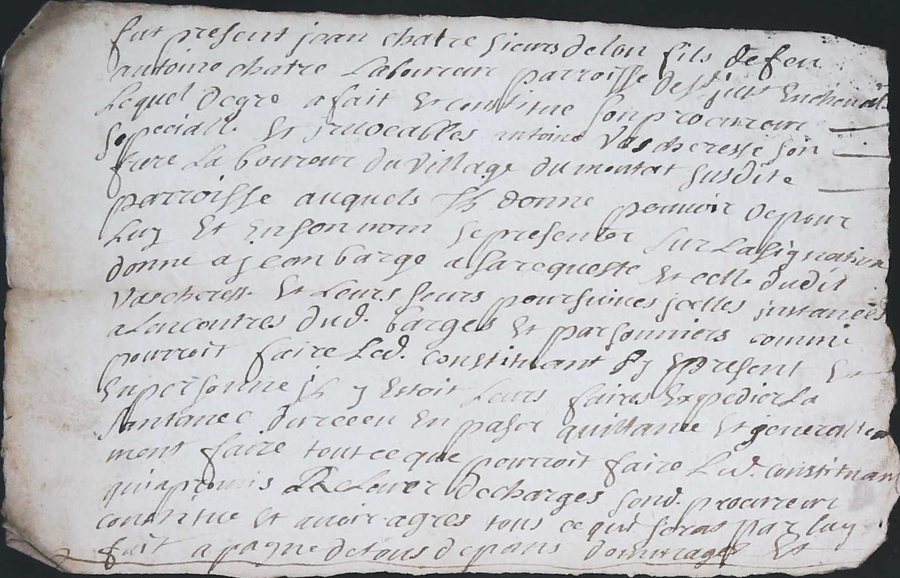 fut present jean chatre sieurs delon fils defeu
antoine chatre Laboureur parroisse de St just Enchevale
Lequel degre a fait Et constitue son procureur
specialle Et jrrevocables antoine Vascheresse son
frere Laboureur du Village du montat susdite
parroisse auquels Il donne pouvoir depour
Luy Et En son nom se presenter sur Lasignation
donne a jean barge a sa requeste Et celle dudit
Vascheresse Et Leurs feurs poursuivres jcelles jnstances
a Lencontres dud. barges Et parsonniers comme
pourroit faire Led. constituant sy present Et
En personne jl y Estoit Leurs faires Expedier La
santance du receu En paser quittance Et generalle
ment faire tout ce que pourroit faire Led. constituant
qui a promis Relever decharges sond. procureur
constitue Et avoir agres tous ce qui seras par luy
fait a pagne de tous depans dommages Et